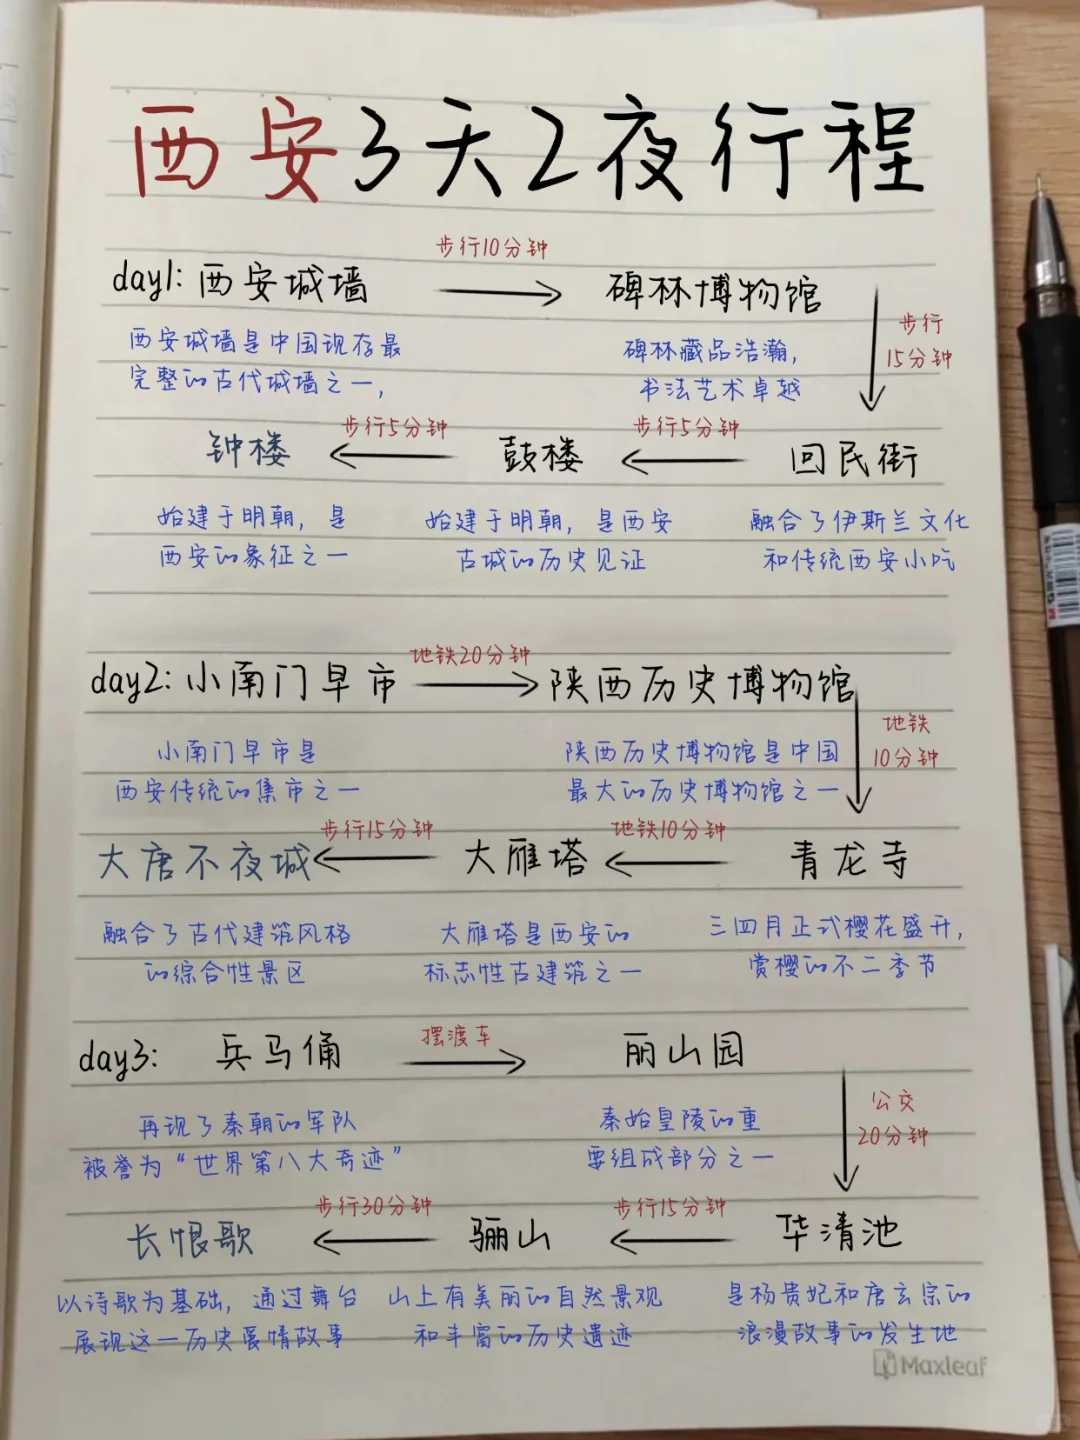 西安3天2夜行程
步行10分钟
day1: 西安城墙
碑林博物馆
步行
15分钟
西安城墙是中国现存最
完整的古代城墙之一,
碑林藏品浩瀚,
书法艺术卓越
钟楼
步行5分钟
鼓楼
步行5分钟
回民街
始建于明朝, 是
西安的象征之一
始建于明朝, 是西安
古城的历史见证
融合了伊斯兰文化
和传统西安小吃
day2: 小南门早市
地铁20分钟
陕西历史博物馆
地铁
10分钟
小南门早市是
西安传统的集市之一
陕西历史博物馆是中国
最大的历史博物馆之一
大唐不夜城
步行15分钟
大雁塔
地铁10分钟
青龙寺
融合了古代建筑风格
的综合性景区
大雁塔是西安的
标志性古建筑之一
三四月正式樱花盛开,
赏樱的不二季节
day3: 兵马俑
摆渡车
丽山园
公交
20分钟
再现了秦朝的军队
被誉为“世界第八大奇迹”
秦始皇陵的重
要组成部分之一
长恨歌
步行30分钟
骊山
步行15分钟
华清池
以诗歌为基础, 通过舞台
展现这一历史爱情故事
山上有美丽的自然景观
和丰富的历史遗迹
是杨贵妃和唐玄宗的
浪漫故事的发生地
Maxleaf